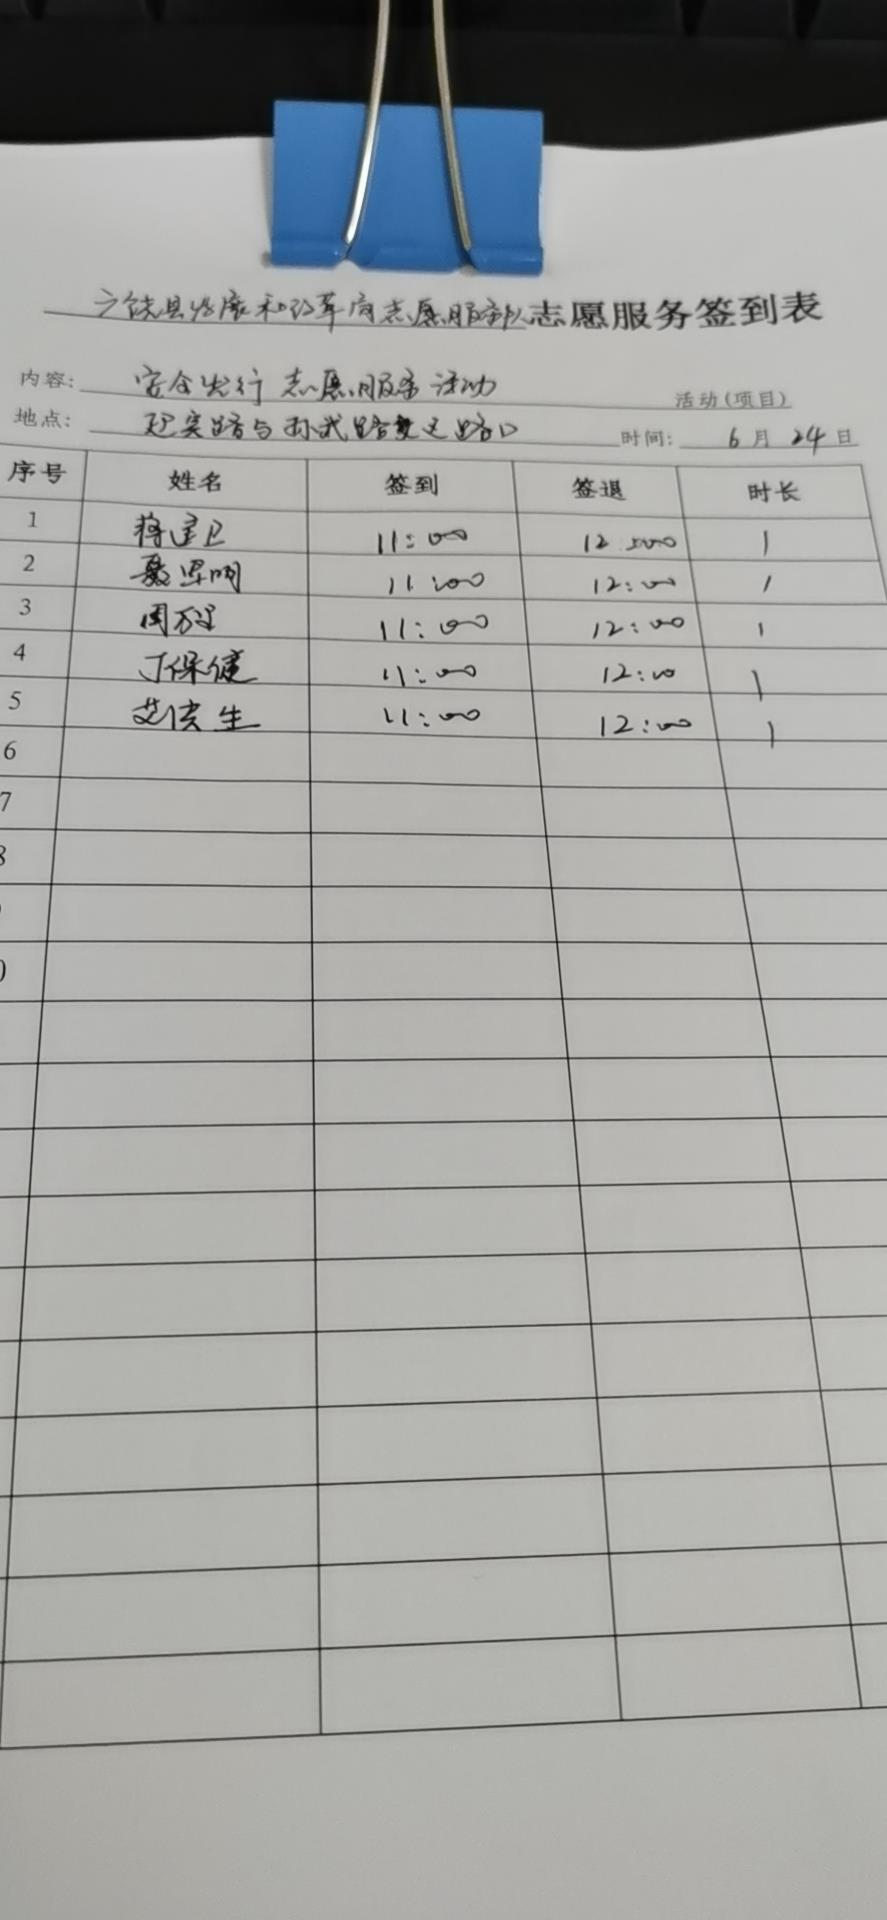 广饶县发展和改革局志愿服务队志愿服务签到表
内容: 安全出行志愿服务活动 活动(项目)
地点: 路与孙武路交叉路口 时间: 6月24日
序号 姓名 签到 签退 时长
1 蒋建卫 11:00 12:00 1
2 11:00 12:00 1
3 周 11:00 12:00 1
4 丁保健 11:00 12:00 1
5 艾 生 11:00 12:00 1
6
7
8